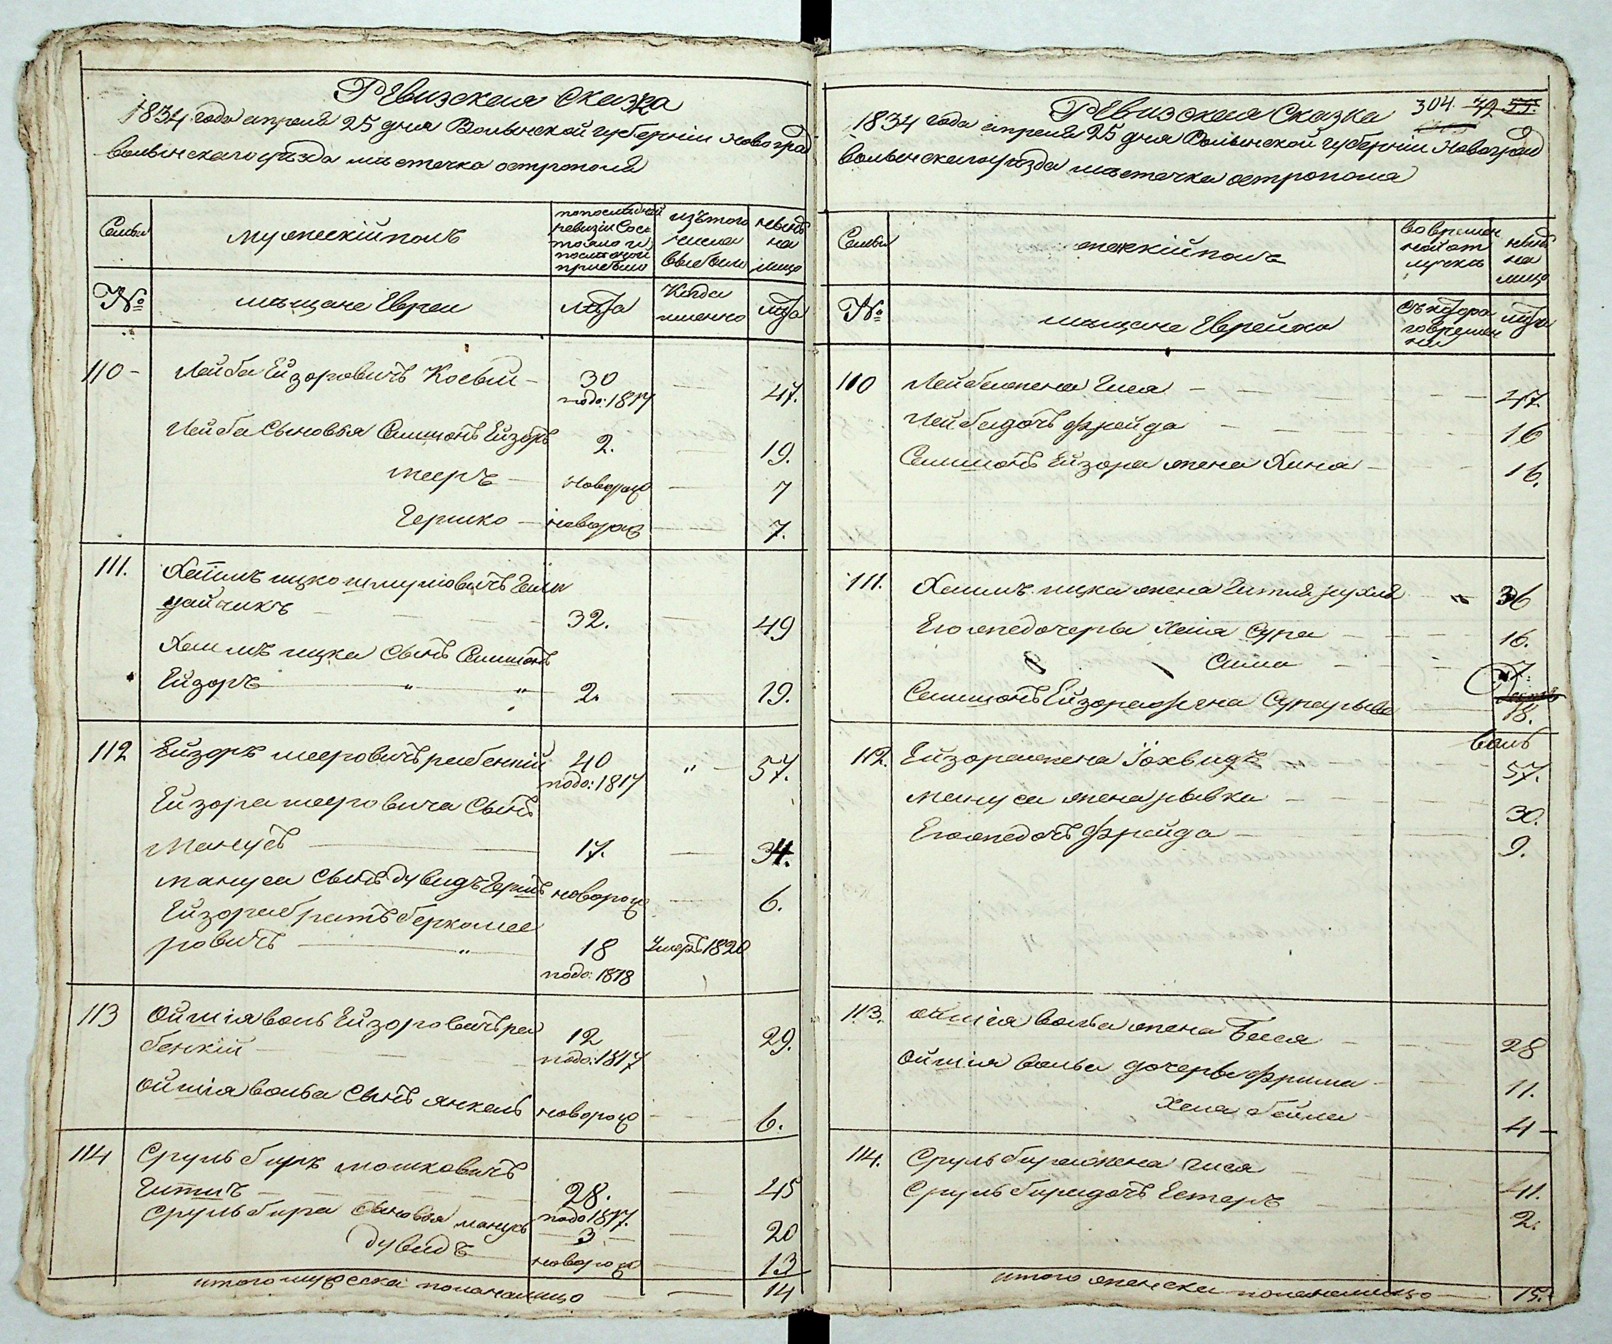 Ревизская Сказка
1834 года апреля 25 дня Волынской губернии Новоград
волынского уѣзда мѣстечка острополя
Семьи
мужескій полъ
по последней
ревизіи Сос
тояло и
после оной
прибыло
изъ того
числа
выбыло
нынѣ
на
лицо
№
мѣщане Евреи
лѣта
Когда
именно
лѣта
110 Лейба Ейзоровичъ 30 47.
подо: 1817
Лейба Сыновья Симшонъ Ейзоръ 2. 19.
мееръ новорож 7
Гершко новорож 7.
111. Хаимъ ицко шмулiовичъ
32. 49
Хаимъ ицка Сынъ Симшонъ
Ейзоръ " " 2. 19.
112 Ейзоръ мееровичъ рабенкій 40 " 57.
подо: 1817
Ейзора мееровича Сынъ
Манусъ 17. 34.
мануса Сынъ дувидъ Гершъ новорож 6.
Ейзора братъ берко мее
ровичъ " 18 Умеръ 1820
подо: 1818
113 Ойшія воль Ейзоровичъ ра 12 29.
бенкій подо: 1817
Ойшія вольа Сынъ янкель новорож 6.
114 Сруль биръ мошковичъ
28. 45
подо 1817.
Сруль бира Сыновья манусъ 3 20
дувидъ новорож 13
итого мужеска пола на лицо 14
Ревизская Сказка 304.
1834 года апреля 25 дня Волынской губерніи Новоград
волынского уѣзда мѣстечка острополя
Семьи
женскій полъ
во времен
ной от
лучкѣ
нынѣ
на
лицо
№
мѣщане Еврейки
съ котора
го времен
ни
лѣта
110 Лейбы жена Гися 47
Лейба дочь фрейда 16
Симшонъ Ейзора жена Хина 16.
111. Хаимъ ицка жена 36
Его же дочеры Хеня Сура 16.
Сима 7.
Симшонъ Ейзора жена Сура рыва 18.
112. Ейзора жена Іохвидъ 57.
мануса жена рывка 30.
Его же дочь фрейда 9.
113. Ойшія вольа жена Бися 28
Ойшія вольа дочеры фрима 11.
Хена бейла 4
114. Сруль бира жена гися 41.
Сруль бира дочь Естеръ 2.
итого женска пола на лицо 15.